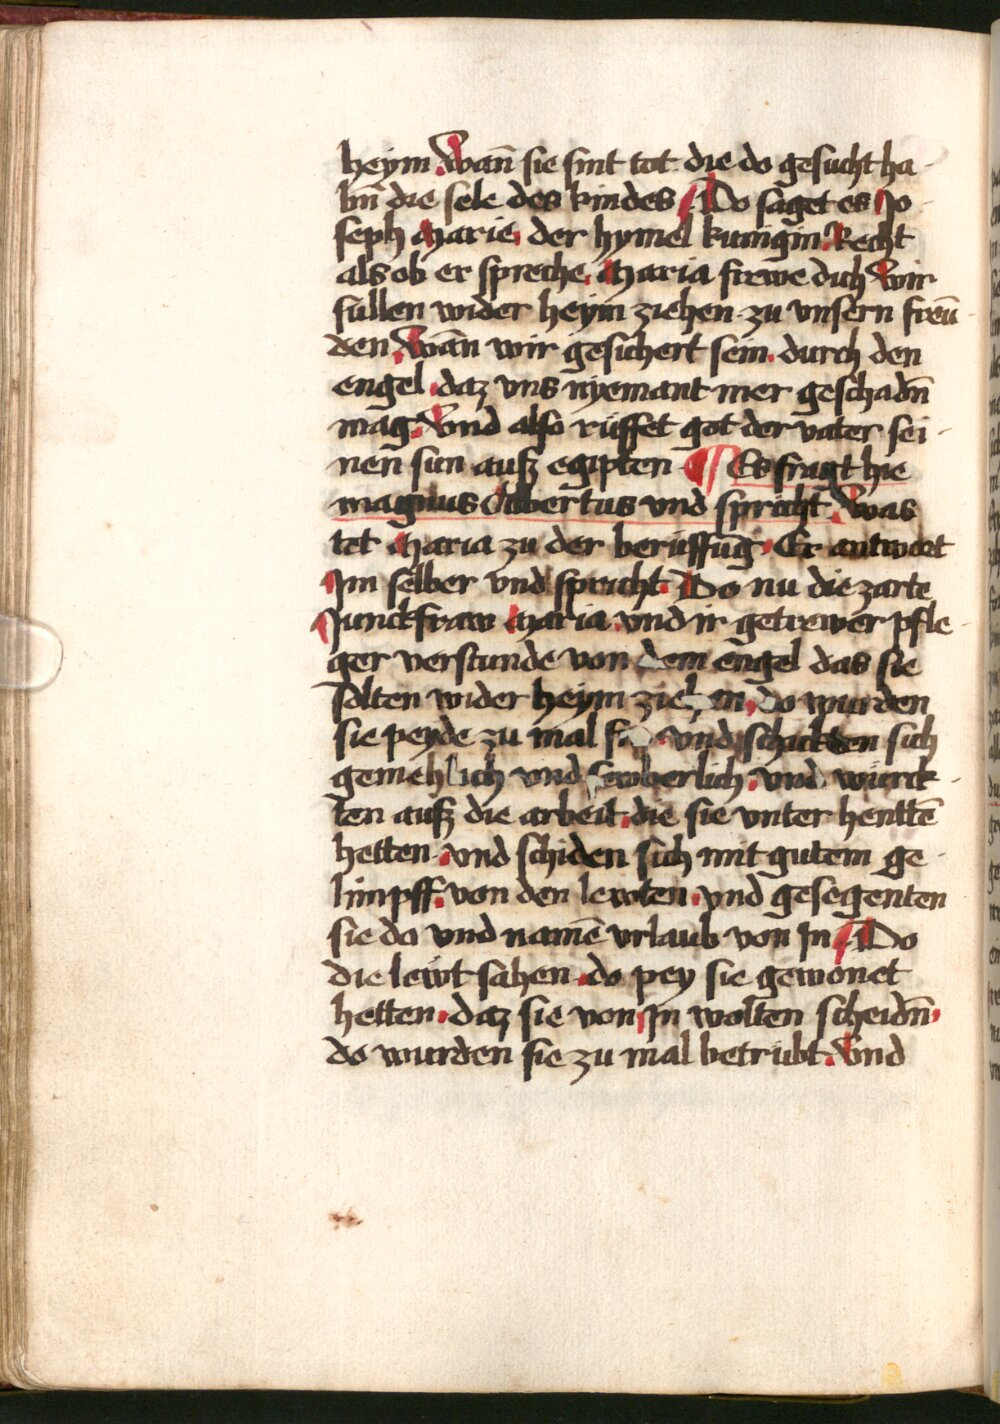 heym. Wañ sie sint tot die do gesucht ha-
bñ die sele des kindes. Do saget es Jo-
seph Marie, der hymel kunigin. Recht
als ob er spreche. Maria frewe dich wir
sullen wider heym ziehen zu vnsern freũ-
den. Wañ wir gesichert sein. durch den
engel. daz vns nyemant mer geschadñ
mag. Vnd also rüffet got der vater sei-
nen sun auß egipten ¶ Es fragt hie
magnus Albertus vnd spricht. Was
tet Maria zu der berüffũg. Er antwort
Jm selber vnd spricht. Do nu die zarte
Junckfraw Maria. vnd ir getrewer pfle-
ger verstunde von dem engel das sie
solten wider heym ziehen, do wurden
sie peyde zu mal vnd schickten sich
gemehlich vnd sewberlich. vnd wurck-
ten auß die arbeit. die sie vnter henttẽ
hetten. vnd schiden sich mit gutem ge-
limpff. von den lewten. vnd gesegenten
sie do vnd namẽ vrlaub von Jn. Do
die lewt sahen. do pey sie gewonet
hetten. daz sie von Jn wolten scheidñ.
do wurden sie zu mal betrubt. Vnd